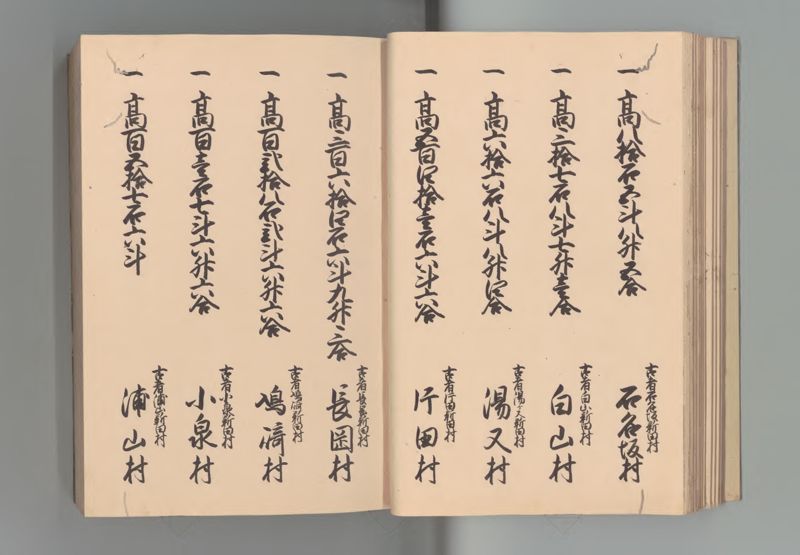 一高八拾石五斗八升五合
古者石名坂新田村
石名坂村
一高三拾七石八斗七升壱合
古者白山新田村
白山村
一高六拾六石八斗八升四合
古者湯之又新田村
湯又村
一高五百四拾壱石六斗六合
古者片田新田村
片田村
一高三百六拾四石六斗九升三合
古者長岡新田村
長岡村
一高百弐拾八石弐斗六升六合
古者嶋崎新田村
嶋崎村
一高百壱石七斗六升六合
古者小泉新田村
小泉村
一高百五拾七石六斗
古者浦山新田村
浦山村